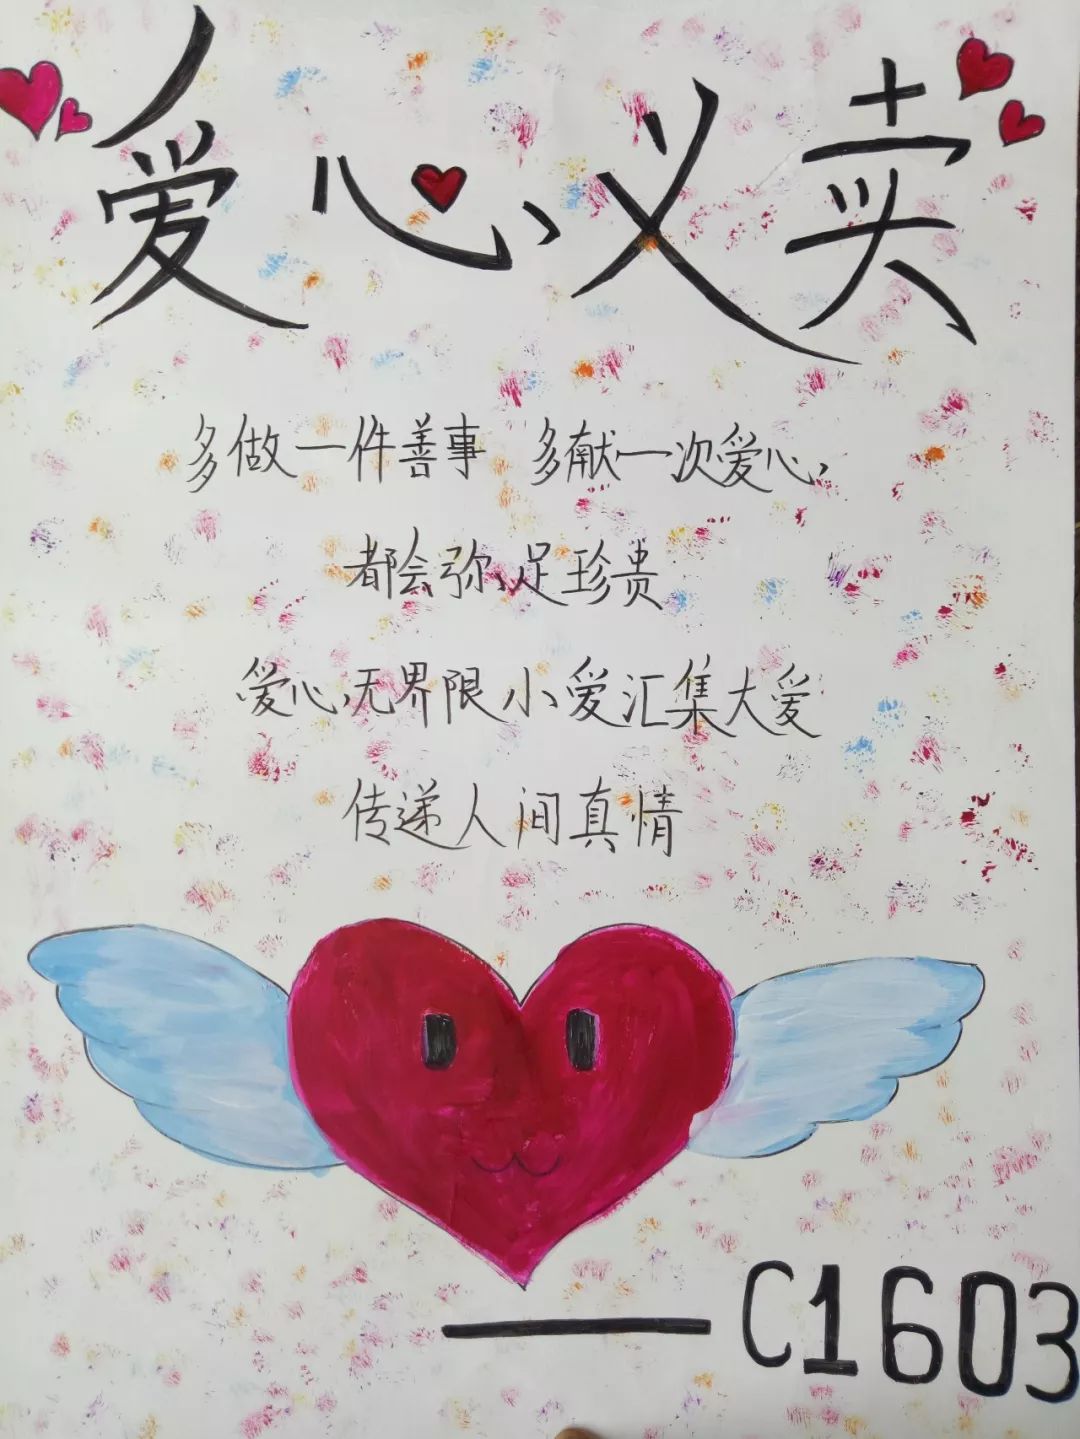 爱心义卖
多做一件善事 多献一次爱心,
都会弥足珍贵
爱心无界限小爱汇集大爱
传递人间真情
——C1603